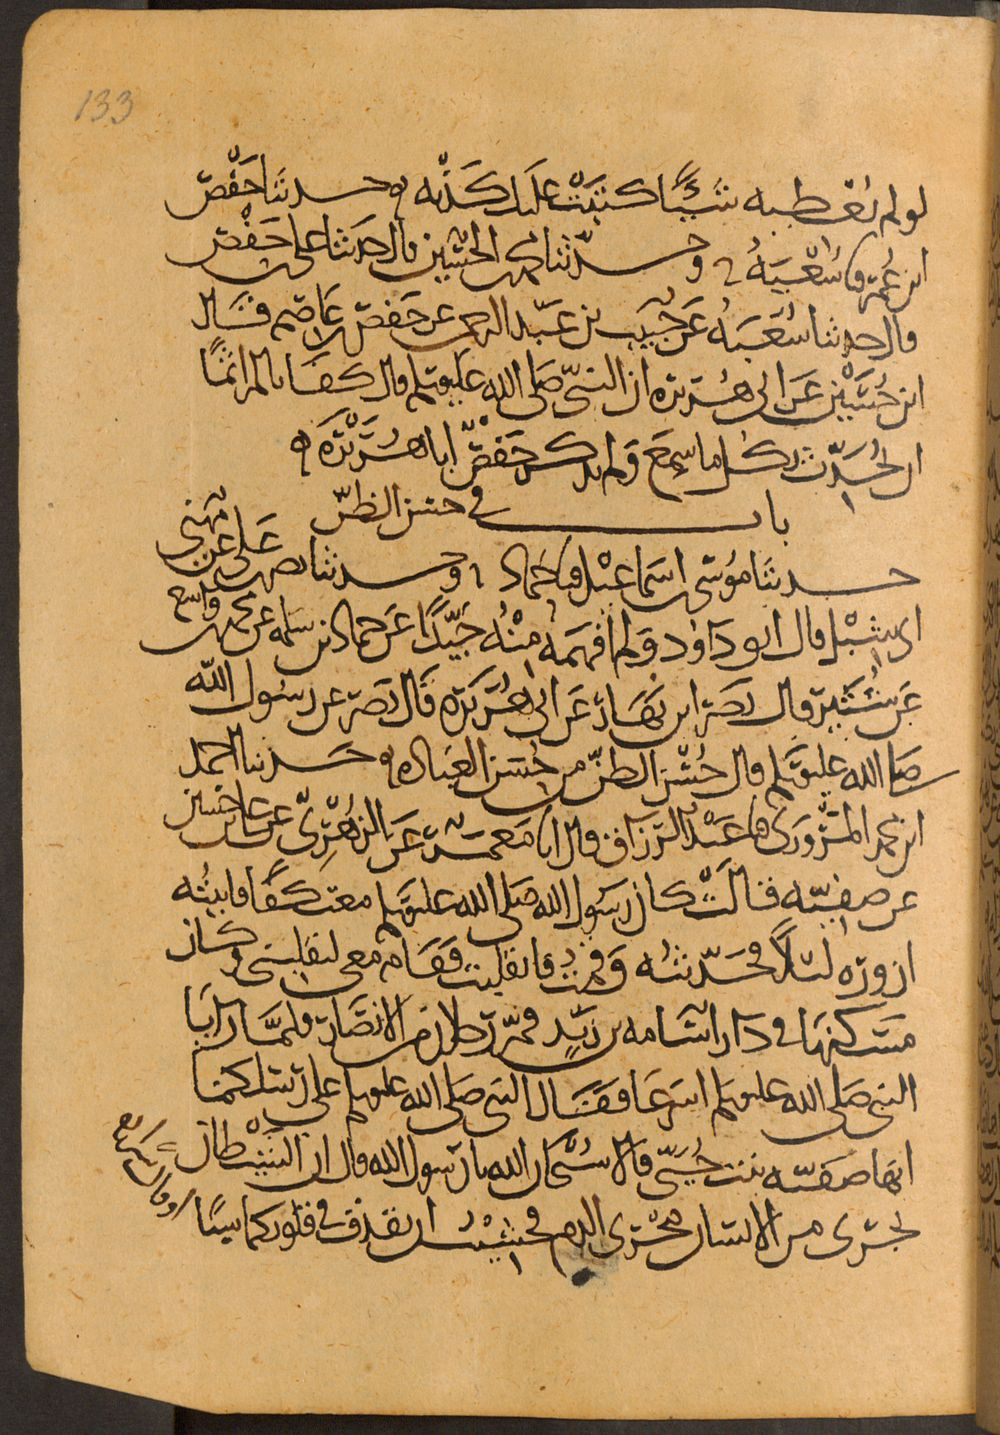 133
لو لم تعطيه شيئا كتبت عليك كذبه ه حدثنا حفص
ابن عمر نا شعبة ه وحدثنا محمد بن الحسين قال حدثنا علي بن حفص
قال حدثنا شعبة عن خبيب بن عبد الرحمن عن حفص بن عاصم فقال
ابن حسين عن ابي هريرة ان النبي صلى الله عليه وسلم قال كفا بالمرء اثما
ان يحدث بكل ما سمع ولم يذكر حفص ابا هريرة ه
باب في حسن الظن
حدثنا موسى بن اسماعيل نا حماد ه وحدثنا نصر بن علي عن مهنى
ابي شبل قال ابو داود ولم افهمه منه جيدا عن حماد بن سلمة عن محمد بن واسع
عن شتير قال نصر ابن نهار عن ابي هريرة قال نصر عن رسول الله
صلى الله عليه وسلم قال حسن الظن من حسن العبادة ه حدثنا احمد
ابن محمد المروزي نا عبد الرزاق قال انا معمر عن الزهري عن علي بن حسين
عن صفية قالت كان رسول الله صلى الله عليه وسلم معتكفا فاتيته
ازوره ليلا فحدثته وقمت فانقلبت فقام معي ليقلبني وكان
مسكنها في دار اسامة بن زيد فمر رجلان من الانصار فلما رايا
النبي صلى الله عليه وسلم اسرعا فقال النبي صلى الله عليه وسلم على رسلكما
انها صفية بنت حيي قالا سبحان الله يا رسول الله قال ان الشيطان
يجري من الانسان مجرى الدم فخشيت ان يقذف في قلوبكما شيئا
او قال شرا